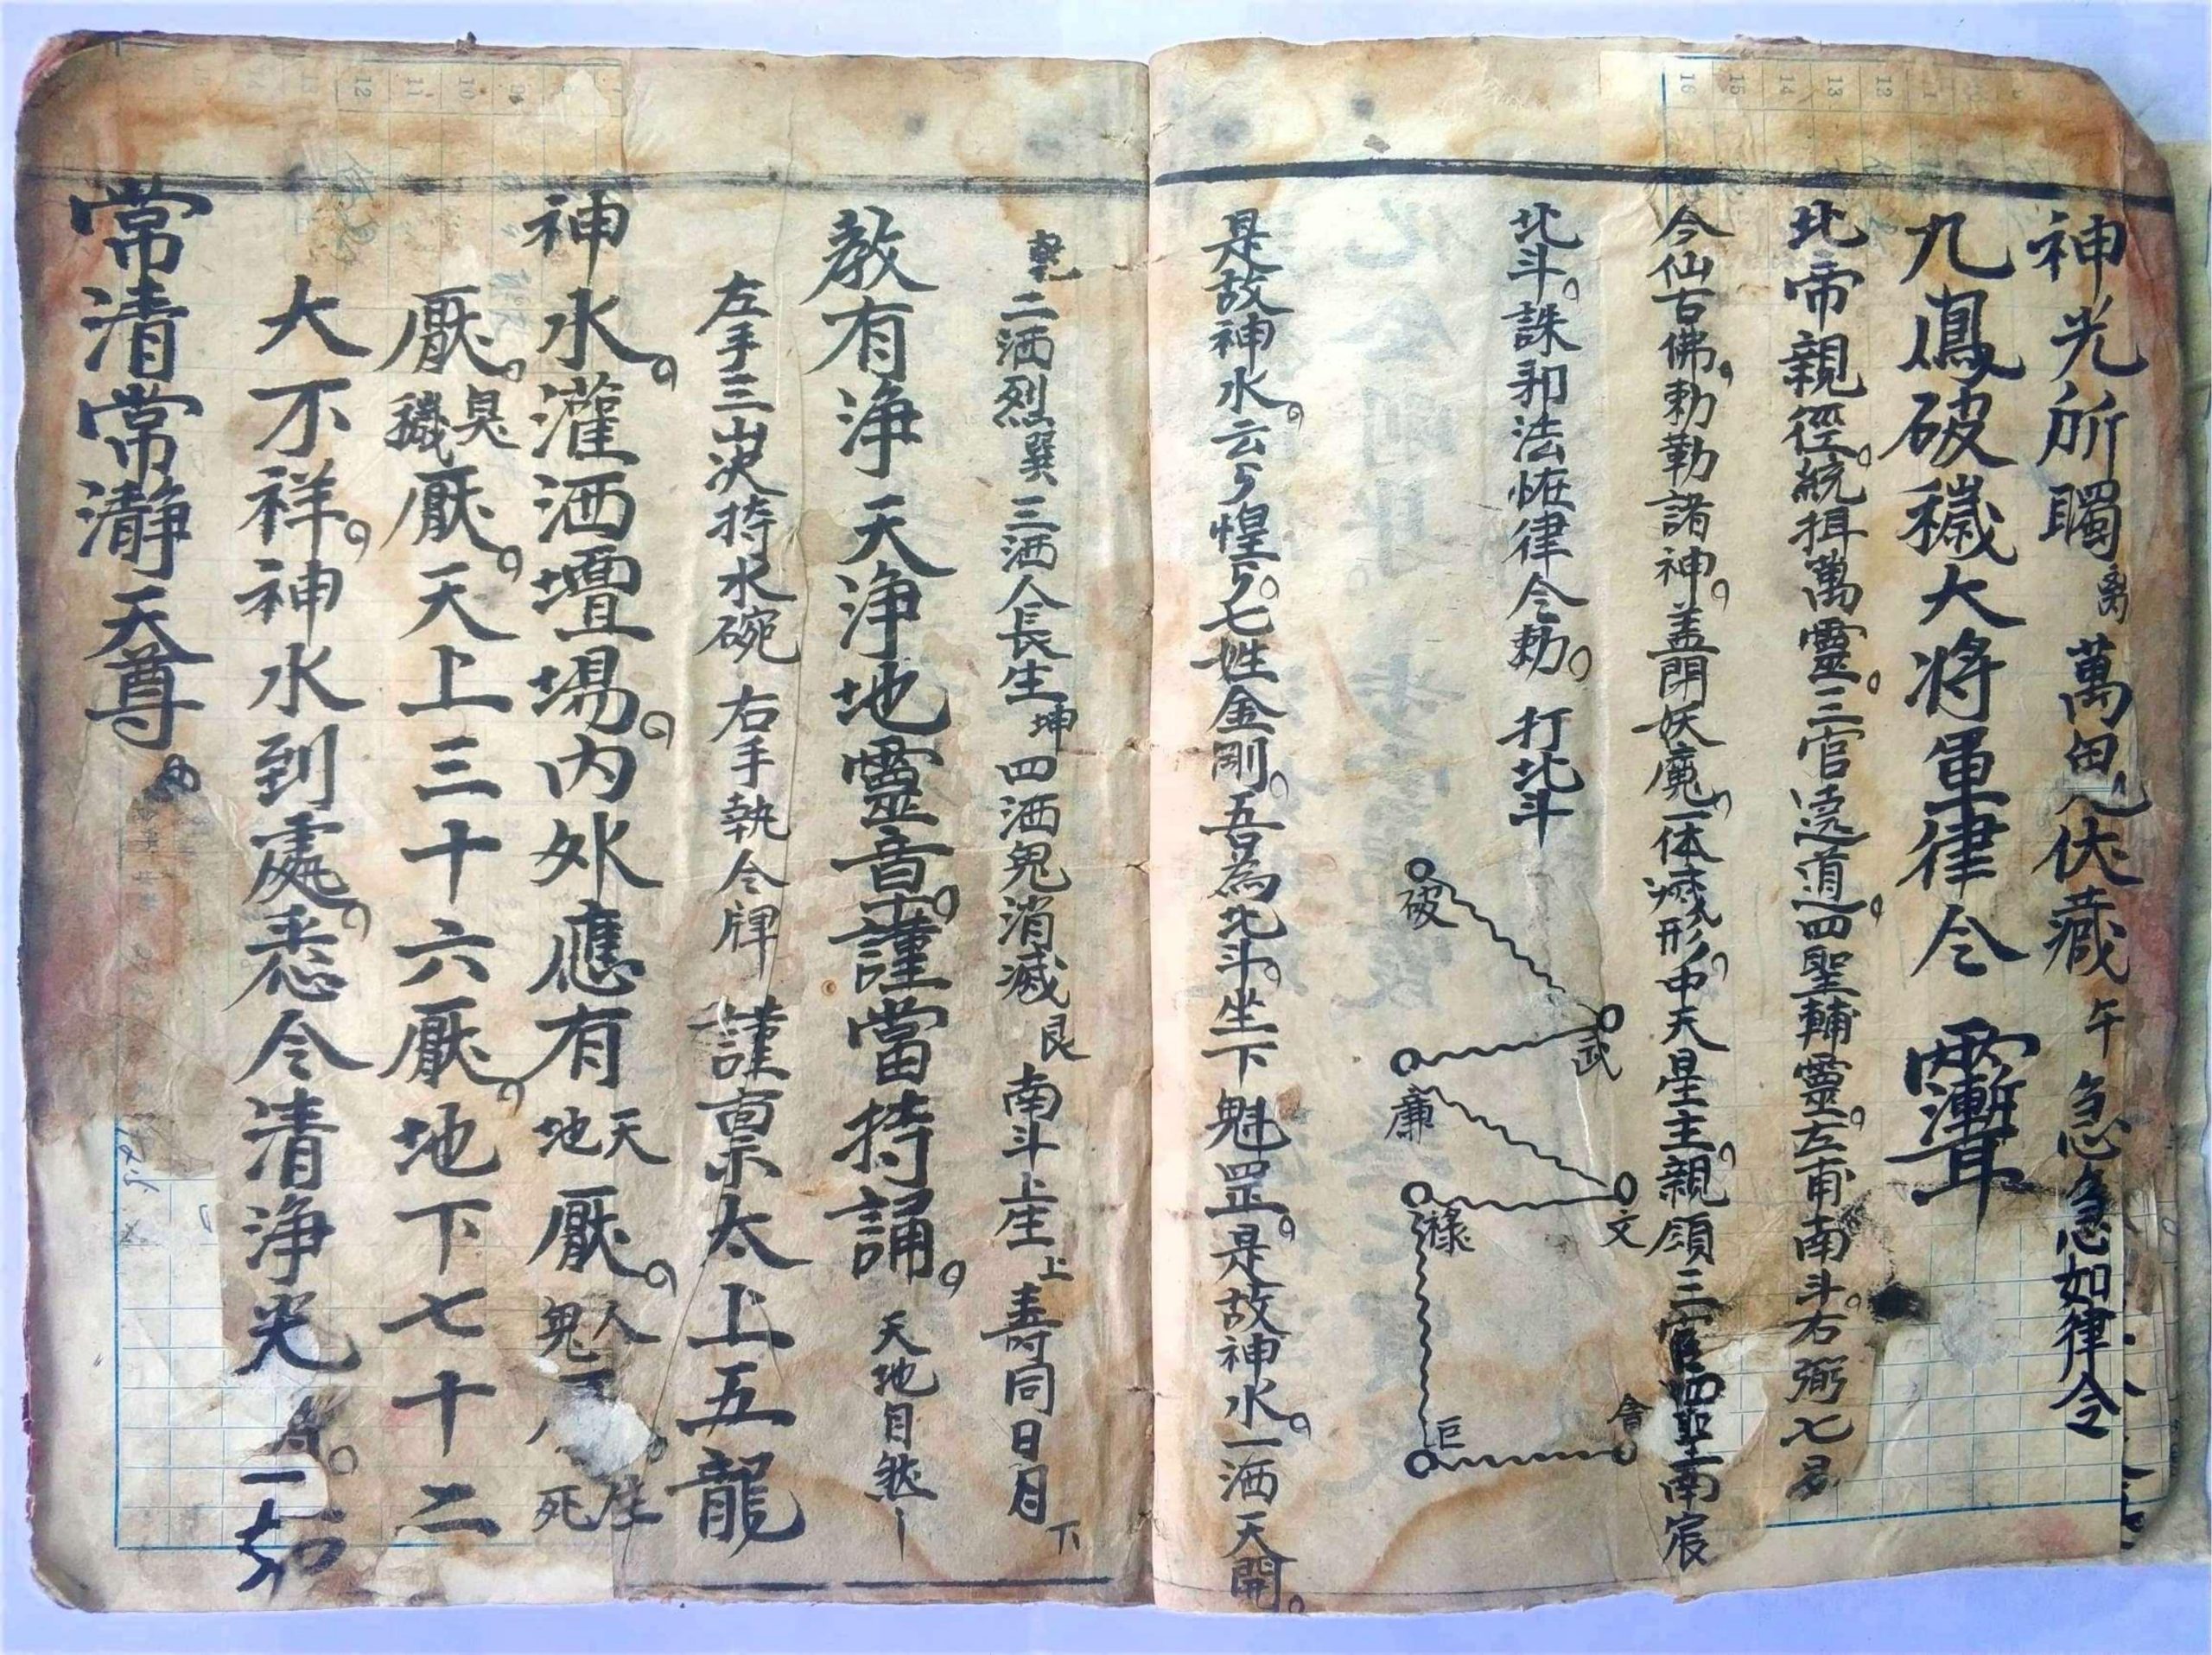 神光所矚離萬鬼伏藏午急急如律令
九鳳破穢大將軍律令
北帝親徑統揖萬靈三官遶道四聖輔靈左甫南斗右弼七
今仙古佛勅勒諸神盖閉妖魔一体滅形中天星主親領三官四聖南宸
北斗誅邪法恠律令勅 打北斗
破
武
廉
文
祿
巨
是故神水云々惶々七姓金剛吾為北斗坐下魁罡是故神水一洒天開
乾二洒烈巽三洒人長生坤四洒鬼消滅艮南斗上生上壽同日月下
教有淨天淨地靈音謹當持誦 天地自然
左手三山決持水碗 右手執令牌 謹稟太上五龍
神水灌洒壇場內外應有天地厭人鬼 生死
厭臭穢厭天上三十六厭地下七十二
大不祥神水到處悉令清淨光 一如
常清常瀞天尊